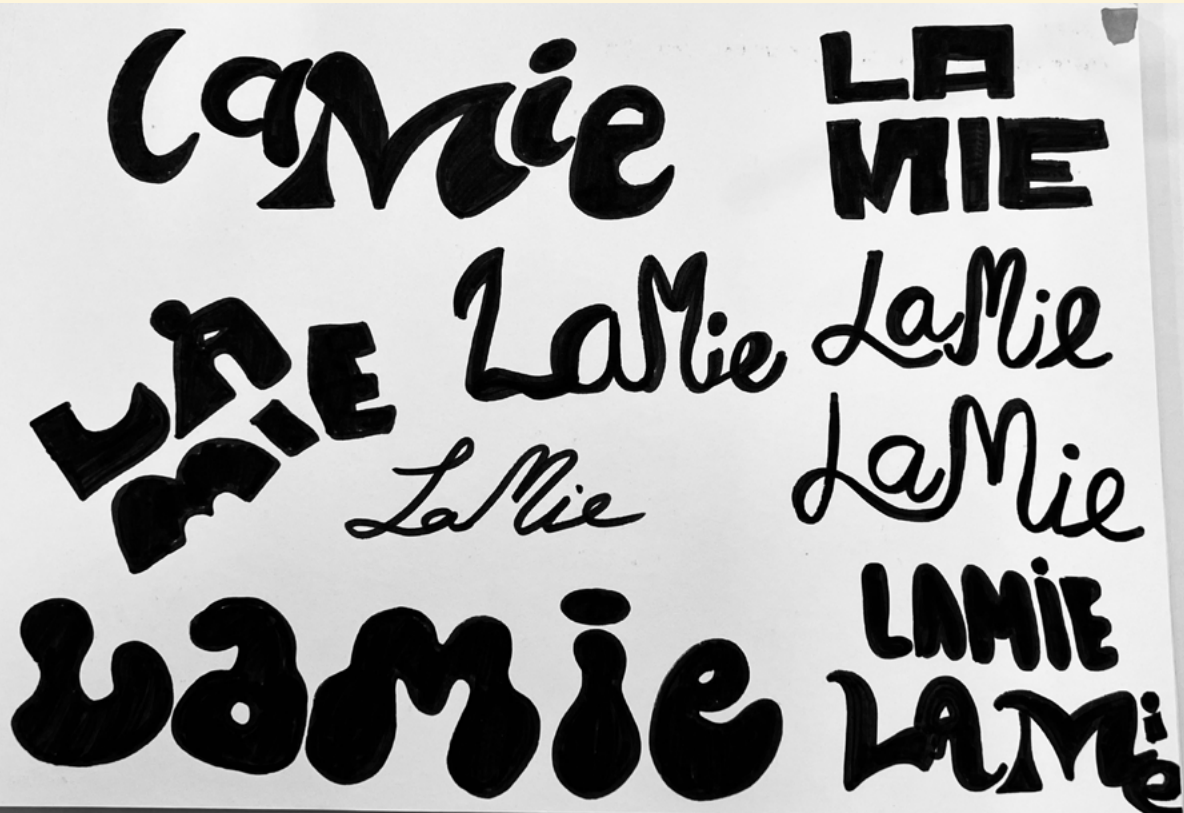 LaMie
LA
MIE
LaMie
LaMie
LA
MIE
LaMie
LaMie
LAMiE
Lamie
LAMie